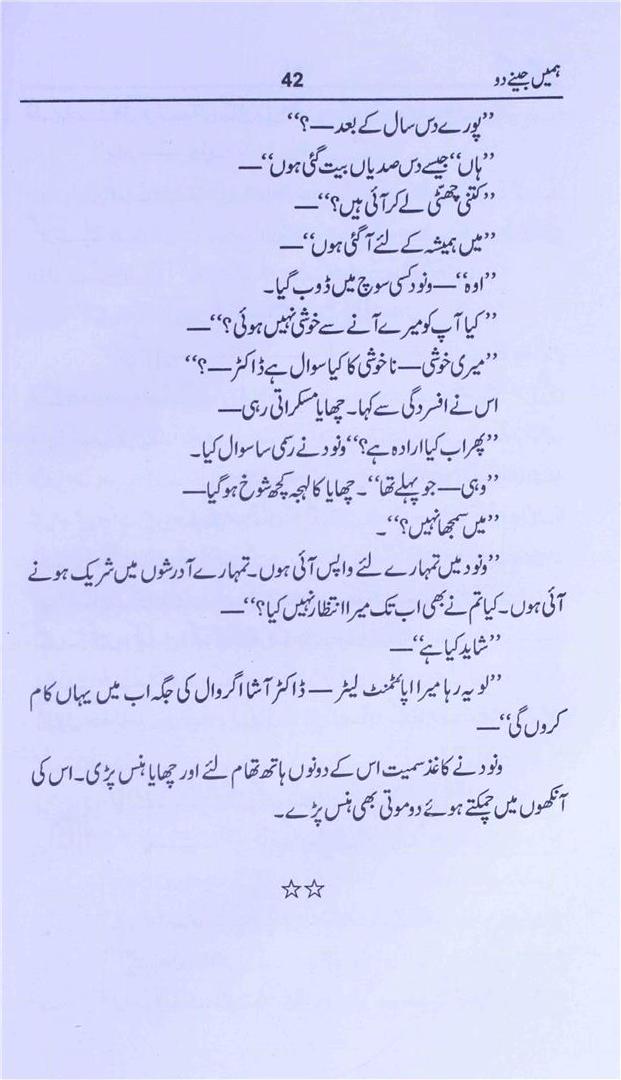 ہمیں جینے دو 42
”پورے دس سال کے بعد —؟“
”ہاں“ جیسے دس صدیاں بیت گئی ہوں“—
”کتنی چھٹّی لے کر آئی ہیں؟“—
”میں ہمیشہ کے لئے آ گئی ہوں“—
”اوہ“— ونود کسی سوچ میں ڈوب گیا۔
”کیا آپ کو میرے آنے سے خوشی نہیں ہوئی؟“—
”میری خوشی— نا خوشی کا کیا سوال ہے ڈاکٹر —؟“
اس نے افسردگی سے کہا۔ چھایا مسکراتی رہی—
”پھر اب کیا ارادہ ہے؟“ ونود نے رسمی سا سوال کیا۔
”وہی — جو پہلے تھا“۔ چھایا کا لہجہ کچھ شوخ ہو گیا—
”میں سمجھا نہیں؟“۔
”ونود میں تمہارے لئے واپس آئی ہوں۔ تمہارے آدرشوں میں شریک ہونے
آئی ہوں۔ کیا تم نے بھی اب تک میرا انتظار نہیں کیا؟“—
”شاید کیا ہے“—
”لو یہ رہا میرا اپائنٹمنٹ لیٹر — ڈاکٹر آشا اگروال کی جگہ اب میں یہاں کام
کروں گی“—
ونود نے کاغذ سمیت اس کے دونوں ہاتھ تھام لئے اور چھایا ہنس پڑی۔ اس کی
آنکھوں میں چمکتے ہوئے دو موتی بھی ہنس پڑے۔
☆☆